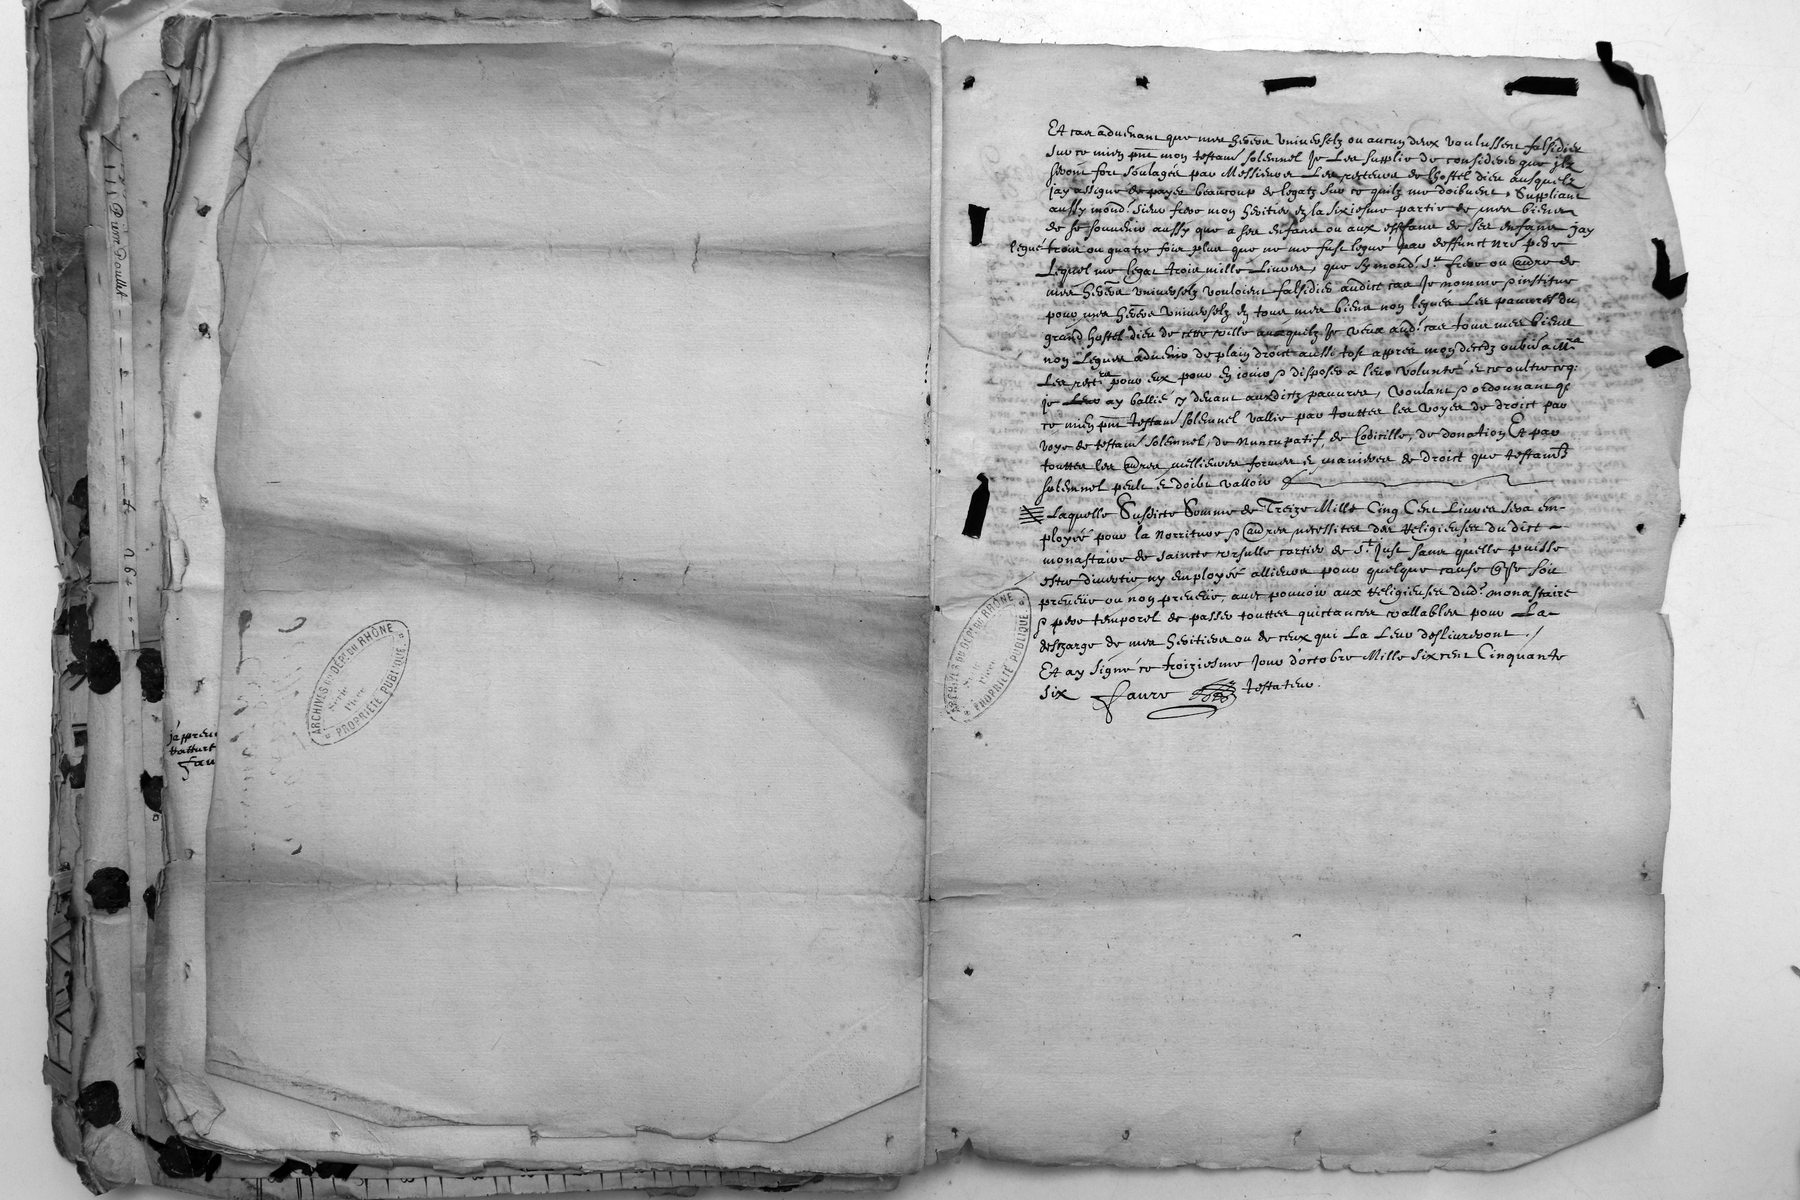 Dieu Doullet
j'appreu
Faur
ARCHIVES DU DÉPT DU RHÔNE
Série
Pièce
PROPRIÉTÉ PUBLIQUE
Et cas aduenant que mes hérers vniuerselz ou aucun deux voulussent falsidier
sur ce mien pnt mon testamt solemnel Je Les supplie de considerer que ilz
seront fort soulagés par Messieurs Les recteurs de lhostel dieu ausquelz
jay assigné de payer beaucoup de legatz sur ce quilz me doibuent, Suppliant
aussy mondt sieur frere mon heritier en la sixiesme partie de mes biens
de se souuenir aussy que a ses enfans ou aux enffans de ses enfans jay
legué trois ou quatre fois plus que ne me fust legué par deffunct nre pere
Lequel me legat trois mille Liures, que sy mondt sr frere ou autre de
mes hérers vniuerselz vouloient falsidier audict cas Je nomme & institue
pour mes hérers vniuerselz en tous mes biens non legués Les pauures du
grand hostel dieu de cette ville ausquelz Je veux audt cas tous mes biens
non Legues aduenir de plain droict aussi tost appres mon decedz oubien a Mrs
Les rectrs pour eux pour en jouir & disposer a leur volunté & ce oultre ce q
je Leur ay baillié cy deuant ausdictz pauures, Voulant & ordonnant q
ce mien pnt testamt solemnel vallie par touttes les voyes de droict par
voye de testamt solemnel, de Nuncupatif, de Codicille, de donation Et par
touttes les autres millieures formes & manieres de droict que testamt
solemnel peult & doibt valloir
Laquelle Susdicte Somme de Treize Mille Cinq Cent Liures sera em-
ployée pour la norriture & autres necessites des Religieuses du dict
monastaire de saincte vrsulle cartier de St Just sans quelle puisse
estre diuertie ny employée allieurs pour quelque cause que se soit
preueüe ou non preueüe, auec pouuoir aux Religieuses dudt monastaire
& pere temporel de passer touttes quictances vallables pour La
descharge de mes heritiers ou de ceux qui La Leur deslivreront.
Et ay signé ce troiziesme jour d'octobre Mille six cent Cinquante
six Faure testateur.
ARCHIVES DU DÉPT DU RHÔNE
Série
Pièce
PROPRIÉTÉ PUBLIQUE